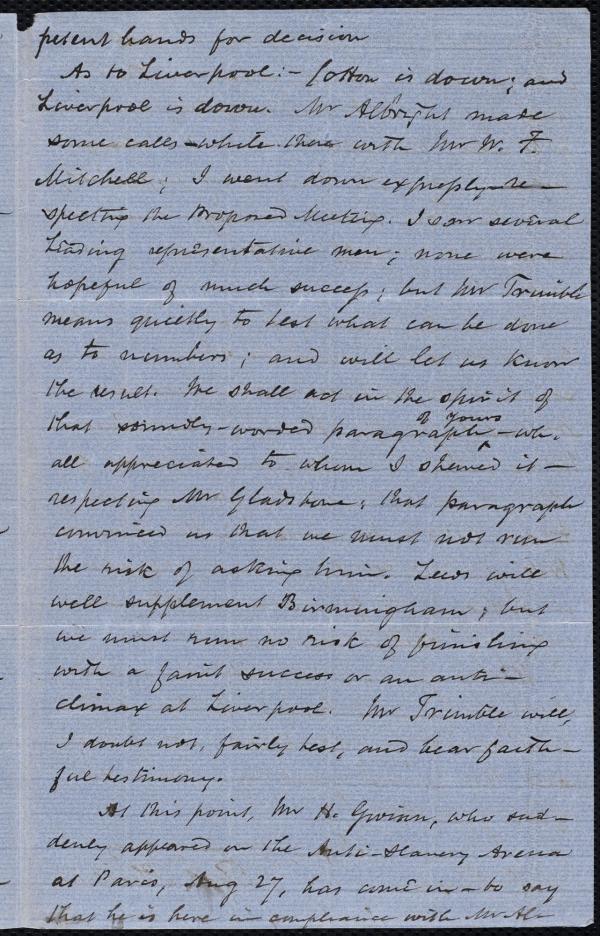 petent hands for decision
As to Liverpool:- Cotton is down; and
Liverpool is down. Mr Albright made
some calls while there with Mr W. F.
Mitchell; I went down expressly re-
specting the Proposed Meeting. I saw several
leading representative men; none were
hopeful of much success; but Mr Trimble
means quietly to test what can be done
as to numbers; and will let us know
the result. We shall act in the spirit of
that soundly-worded paragraph of yours - wh.
all appreciated to whom I shewed it -
respecting Mr Gladstone; that paragraph
convinced us that we must not run
the risk of asking him. Leeds will
well supplement Birmingham; but
we must run no risk of finishing
with a faint success or an anti-
climax at Liverpool. Mr Trimble will,
I doubt not, fairly test, and bear faith-
ful testimony.
At this point, Mr H. Gwinn, who sud-
denly appeared on the Anti-Slavery Arena
at Paris, Aug 27, has come in - to say
that he is here in compliance with Mr Al-